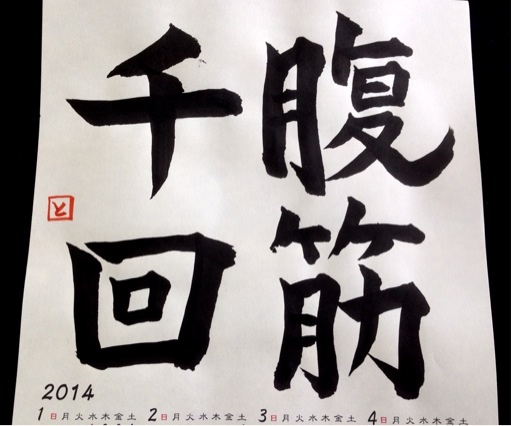 腹筋
千回
と
2014
1 日月火水木金土 2 日月火水木金土 3 日月火水木金土 4 日月火水木金土